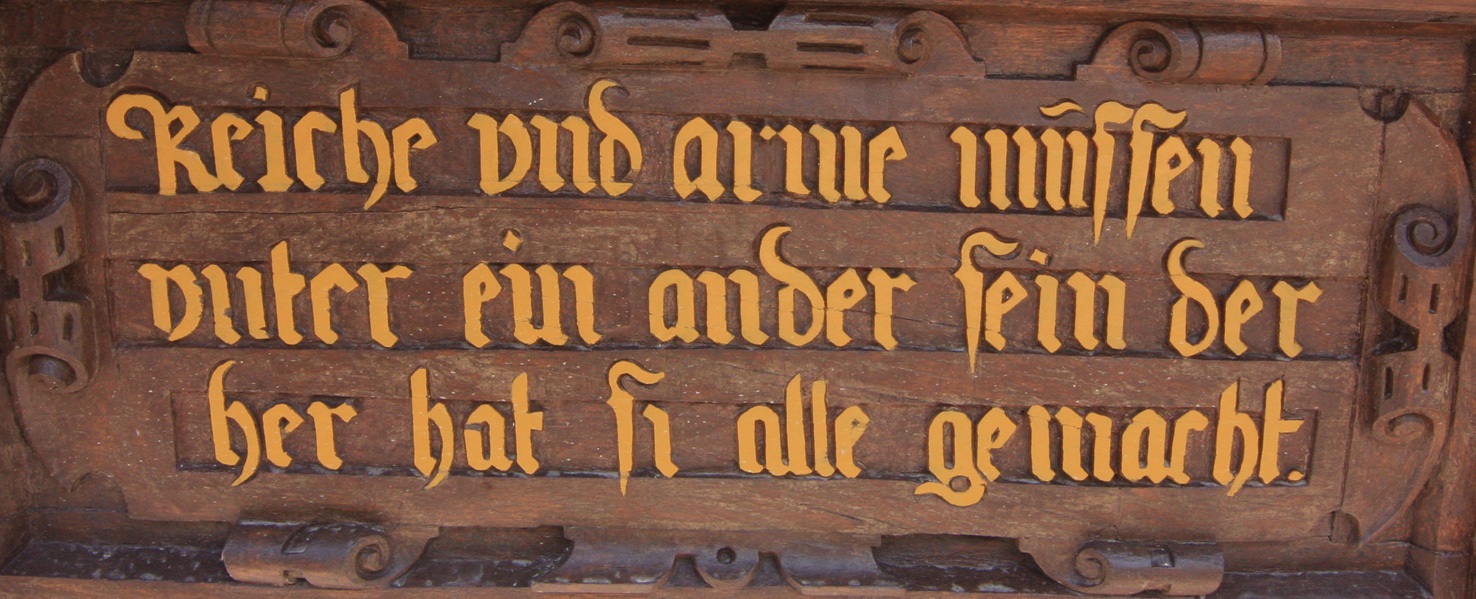 Reiche vnd arme müssen
vnter ein ander sein der
her hat si alle gemacht.